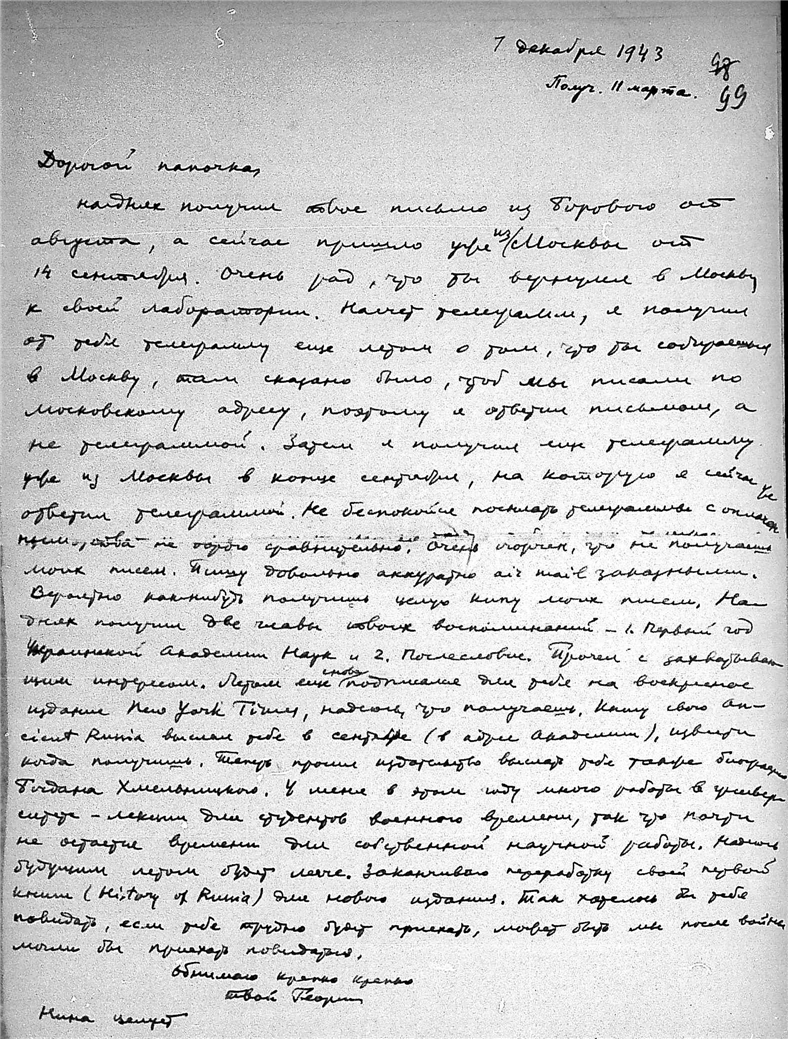 7 декабря 1943
98
Получ. 11 марта.
99
Дорогой папочка,
на днях получил твое письмо из Борового от
августа, а сейчас пришло уже из Москвы от
14 сентября. Очень рад, что ты вернулся в Москву
к своей лаборатории. Насчет телеграмм, я получил
от тебя телеграмму еще летом о том, что ты собираешься
в Москву, там сказано было, чтоб мы писали по
московскому адресу, поэтому я ответил письмом, а
не телеграммой. Затем я получил еще телеграмму
уже из Москвы в конце сентября, на которую я сейчас же
ответил телеграммой. Не беспокойся посылать телеграммы с оплачен
не дорого сравнительно. Очень огорчен, что не получаешь
моих писем. Пишу довольно аккуратно air mail заказными.
Вероятно как нибудь получишь целую кипу моих писем. На
днях получил две главы твоих воспоминаний – 1. Первый год
Украинской Академии Наук и 2. Послесловие. Прочел с захватываю-
щим интересом. Летом еще снова подписался для тебя на воскресное
издание New York Times, надеюсь, что получаешь. Книгу свою An-
cient Russia выслал тебе в сентябре (в адрес Академии), извести
когда получишь. Теперь просил издательство выслать тебе также биографию
Богдана Хмельницкого. У меня в этом году много работы в универ-
ситете – лекции для студентов военного времени, так что почти
не остается времени для собственной научной работы. Надеюсь
будущим летом будет легче. Заканчиваю переработку своей первой
книги (History of Russia) для нового издания. Так хотелось бы тебя
повидать, если тебе трудно будет приехать, может быть мы после войны
могли бы приехать повидаться.
Обнимаю крепко крепко
твой Георгий
Нина целует